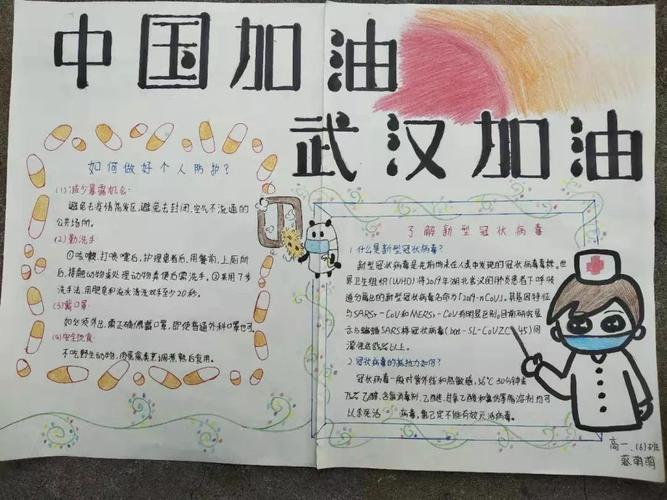 中国加油
武汉加油
如何做好个人防护？
(1)减少暴露机会:
避免去疫情高发区,避免去封闭,空气不流通的
公共场所。
(2)勤洗手
①咳嗽,打喷嚏后,护理患者后,用餐前,上厕所
后,接触动物或处理动物粪便后需洗手。②采用了步
洗手法,用肥皂和流水清洗双手至少20秒。
(3)戴口罩
如必须外出,需正确佩戴口罩,即使普通外科口罩也可。
(4)卫生饮食
不吃野生动物,肉蛋禽类烹调煮熟后食用。
了解新型冠状病毒
1.什么是新型冠状病毒?
新型冠状病毒是先前尚未在人类中发现的冠状病毒毒株。世
界卫生组织(WHO)将2019年湖北武汉的肺炎患者下呼吸
道分离出的新型冠状病毒名命为「2019-nCoV」。其基因特征
与SARSr-CoV和MERSr-CoV有明显区别。目前研究显
示与蝙蝠SARS样冠状病毒(bat-SL-CoVZC45)同
源性达85%以上。
2.冠状病毒的抵抗力如何?
冠状病毒一般对紫外线和热敏感,56℃30分钟
75%乙醇、含氯消毒剂、乙醚、过氧乙酸和氯仿等脂溶剂均可
以杀死活病毒,氯己定不能有效灭活病毒。
高一、(6)班
蔡萌萌